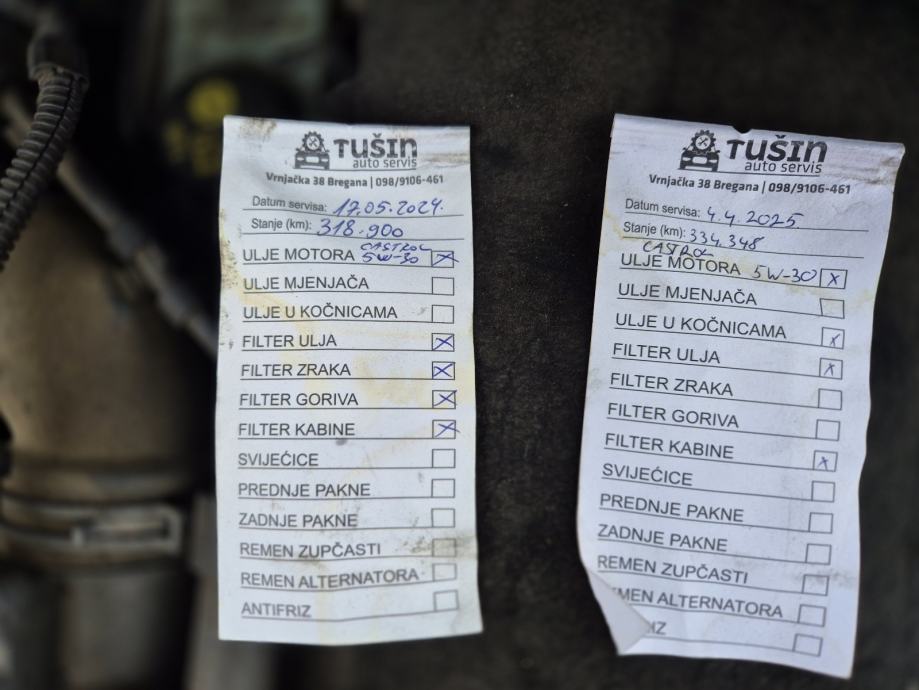 TUŠIN
auto servis
Vrnjačka 38 Bregana | 098/9106-461
Datum servisa: 17.05.2024.
Stanje (km): 318.900
CASTROL
ULJE MOTORA 5W-30 X
ULJE MJENJAČA
ULJE U KOČNICAMA
FILTER ULJA X
FILTER ZRAKA X
FILTER GORIVA X
FILTER KABINE X
SVIJEĆICE
PREDNJE PAKNE
ZADNJE PAKNE
REMEN ZUPČASTI
REMEN ALTERNATORA
ANTIFRIZ
TUŠIN
auto servis
Vrnjačka 38 Bregana | 098/9106-461
Datum servisa: 4.4.2025.
Stanje (km): 334.348
CASTROL
ULJE MOTORA 5W-30 X
ULJE MJENJAČA
ULJE U KOČNICAMA X
FILTER ULJA X
FILTER ZRAKA
FILTER GORIVA
FILTER KABINE X
SVIJEĆICE
PREDNJE PAKNE
ZADNJE PAKNE
REMEN ZUPČASTI
MEN ALTERNATORA
IZ